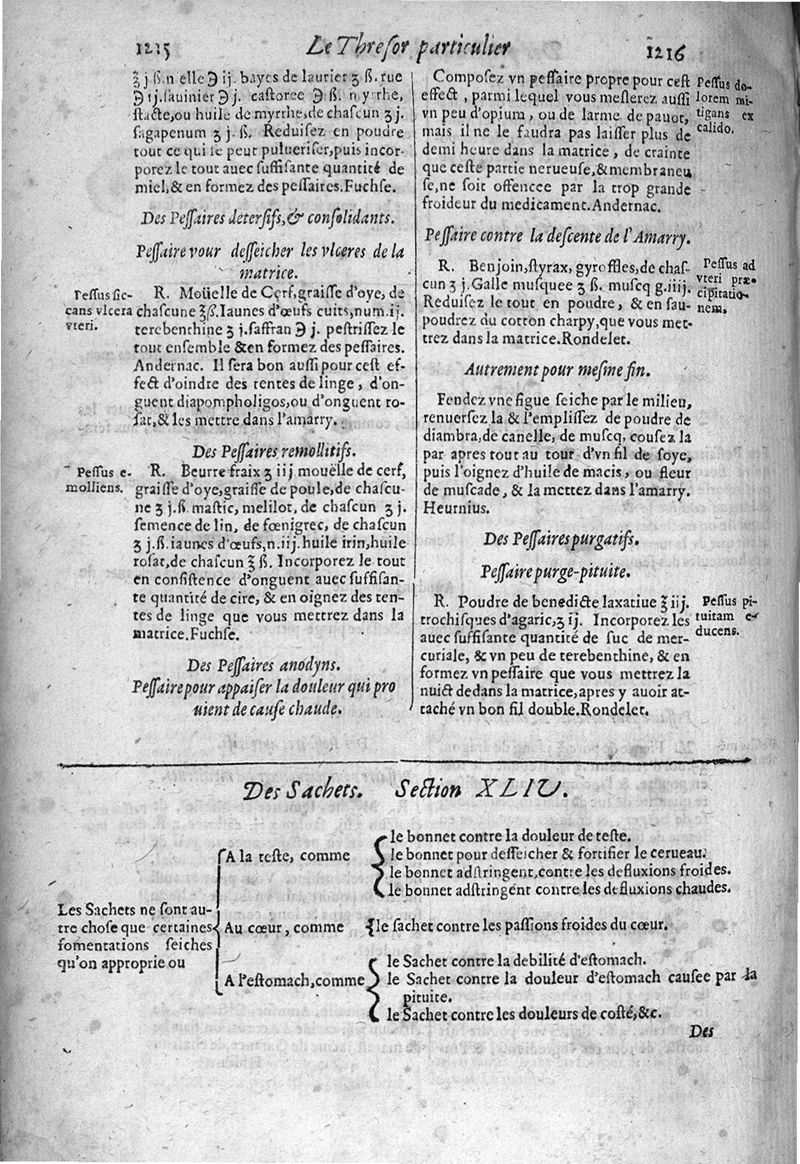 1215
Le Thresor particulier
1216
℥ j. ß. nielle ℈ ij. bayes de laurier ʒ ß. rue
℈ ij. sauinier ℈ j. castoree ℈ ß. myrrhe,
stacte, ou huile de myrrhe, de chascun ʒ j.
sagapenum ʒ j. ß. Reduisez en poudre
tout ce qui se peut pulueriser, puis incor-
porez le tout auec suffisante quantité de
miel, & en formez des pessaires. Fuchse.
Des Pessaires detersifs, & consolidants.
Pessaire pour desseicher les vlceres de la
matrice.
Pessus sic-
cans vlcera
vteri.
R. Moüelle de Cerf, graisse d'oye, de
chascune ℥ ß. Iaunes d'œufs cuits, num. ij.
terebenchine ʒ j. saffran ℈ j. pestrissez le
tout ensemble & en formez des pessaires.
Andernac. Il sera bon aussi pour cest ef-
fect d'oindre des tentes de linge, d'on-
guent diapompholigos, ou d'onguent ro-
sat, & les mettre dans l'amarry.
Des Pessaires remollitifs.
Pessus e-
molliens.
R. Beurre fraix ʒ iij mouëlle de cerf,
graisse d'oye, graisse de poule, de chascu-
ne ʒ j. ß. mastic, melilot, de chascun ʒ j.
semence de lin, de fœnigrec, de chascun
ʒ j. ß. iaunes d'œufs, n. iij. huile irin, huile
rosat, de chascun ℥ ß. Incorporez le tout
en consistence d'onguent auec suffisan-
te quantité de cire, & en oignez des ten-
tes de linge que vous mettrez dans la
matrice. Fuchse.
Des Pessaires anodyns.
Pessaire pour appaiser la douleur qui pro
uient de cause chaude.
Composez vn pessaire propre pour cest
effect, parmi lequel vous meslerez aussi
vn peu d'opium, ou de larme de pauot,
mais il ne le faudra pas laisser plus de
demi heure dans la matrice, de crainte
que ceste partie nerueuse, & membraneu
se, ne soit offencee par la trop grande
froideur du medicament. Andernac.
Pessus do-
lorem mi-
tigans ex
calido.
Pessaire contre la descente de l'Amarry.
R. Benjoin, styrax, gyroffles, de chas-
cun ʒ j. Galle musquee ʒ ß. muscq g. iiij.
Reduisez le tout en poudre, & en sau-
poudrez du cotton charpy, que vous met-
trez dans la matrice. Rondelet.
Pessus ad
vteri præ-
cipitatio-
nem.
Autrement pour mesme fin.
Fendez vne figue seiche par le milieu,
renuersez la & l'emplissez de poudre de
diambra, de canelle, de muscq, cousez la
par apres tout au tour d'vn fil de soye,
puis l'oignez d'huile de macis, ou fleur
de muscade, & la mettez dans l'amarry.
Heurnius.
Des Pessaires purgatifs.
Pessaire purge-pituite.
R. Poudre de benedicte laxatiue ℥ iij.
trochisques d'agaric, ʒ ij. Incorporez les
auec suffisante quantité de suc de mer-
curiale, & vn peu de terebenthine, & en
formez vn pessaire que vous mettrez la
nuict dedans la matrice, apres y auoir at-
taché vn bon fil double. Rondelet.
Pessus pi-
tuitam e-
ducens.
Des Sachets. Section XLIV.
Les Sachets ne sont au-
tre chose que certaines
fomentations seiches
qu'on approprie ou
A la teste, comme
le bonnet contre la douleur de teste.
le bonnet pour desseicher & fortifier le cerueau.
le bonnet adstringent, contre les defluxions froides.
le bonnet adstringent contre les defluxions chaudes.
Au cœur, comme
le sachet contre les passions froides du cœur.
A l'estomach, comme
le Sachet contre la debilité d'estomach.
le Sachet contre la douleur d'estomach causee par la
pituite.
le Sachet contre les douleurs de costé, &c.
Des